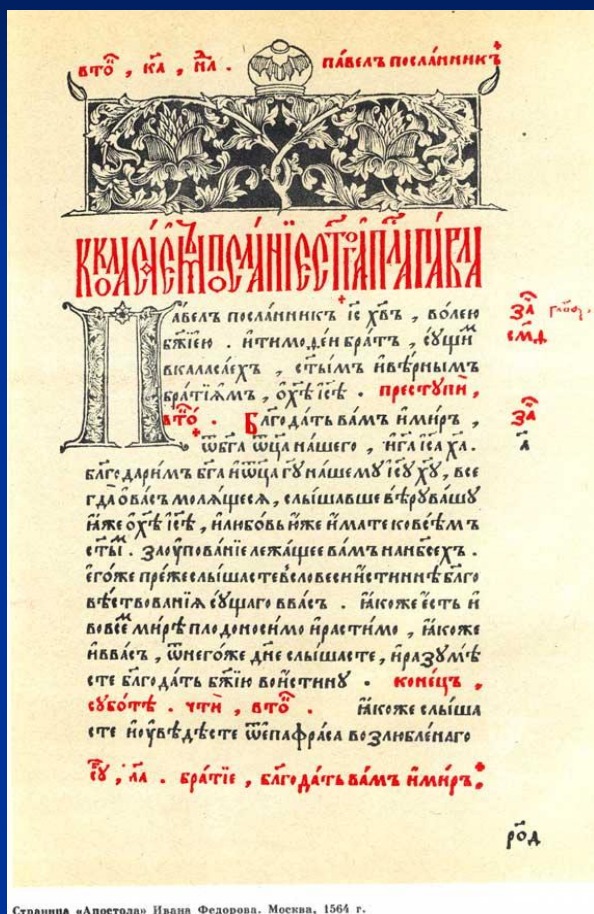 вто҃ , ка҃ , нл҃а . па́велъ посла́нникъ
Ккаласїѐмъ посла́нїе ст҃а́гѡ а҆пл҃а па́вла
Па́велъ посла́нникъ і҆с҃ хв҃ъ , во́лею
бж҃їею . и҆ тимоѳе́и бра́тъ , су́щи҃
вкаласа́ехъ , ст҃ы́мъ и҆ вѣ́рнымъ
бра́тїямъ , ѡ҆ хѣ҃ і҆сѣ҃ . преступѝ ,
вто҃ . Бл҃года́ть ва́мъ и҆ ми́ръ ,
ѿ бг҃а ѡ҆ц҃а на́шего , и҆ г҃а і҆с҃а х҃а .
благодари́мъ бг҃а и҆ ѡ҆ц҃а г҃у на́шему і҆с҃у х҃у , все
гда̀ ѡ҆ ва́съ моля́щеся , слы́шавше вѣ́ру ва́шу
ꙗ҆́же ѡ҆ хѣ҃ і҆сѣ҃ , и҆ любо́вь ю҆́же и҆́мате ко всѣ́мъ
ст҃ы҃ . за ᲂу҆пова́нїе лежа́щее ва́мъ на нб҃сехъ .
є҆го́же пре́же слы́шасте в словесѝ и҆́стиннѣ бл҃го
вѣ́ствованїѧ су́щаго в ва́съ . ꙗ҆́коже є҆́сть и҆
во все҃ ми́рѣ плодоноси́мо и҆ расти́мо , ꙗ҆́коже
и҆ в ва́съ , ѿ него́же дн҃е слы́шасте , и҆ разумѣ́
сте бл҃года́ть бж҃їю вои́стину . коне́цъ ,
субо́тѣ . чтѝ , вто҃ . ꙗ҆́коже слы́ша
сте и҆ ᲂу҆вѣ́дѣсте ѿ є҆пафра́са возлю́бленаго
су҃ , ла҃ . бра́тїе , бл҃года́ть ва́мъ и҆ ми́ръ .
за҃
за҃
а҃
ро҃д
Страница «Апостола» Ивана Федорова. Москва, 1564 г.